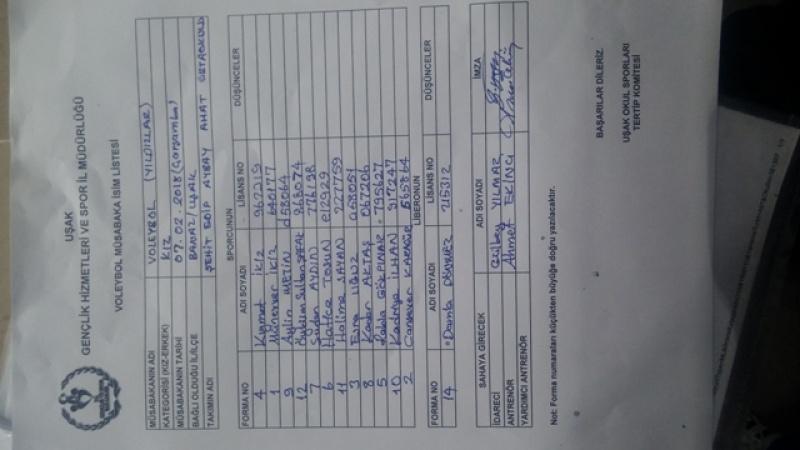 UŞAK
GENÇLİK HİZMETLERİ VE SPOR İL MÜDÜRLÜĞÜ
VOLEYBOL MÜSABAKA İSİM LİSTESİ
MÜSABAKANIN ADI VOLEYBOL (YILDIZLAR)
KATEGORİSİ (KIZ-ERKEK) KIZ
MÜSABAKANIN TARİHİ 07.02.2018 (Çarşamba)
BAĞLI OLDUĞU İL/İLÇE BANAZ/UŞAK
TAKIMIN ADI ŞEHİT EDİP AYBAY AHAT ORTAOKULU
SPORCUNUN
FORMA NO ADI SOYADI LİSANS NO DÜŞÜNCELER
4 Kıymet İKİZ 967219
1 Münevver İKİZ 640177
9 Aylin METİN 058064
12 968074
7 AYDIN 776198
6 Hatice TOSUN
11 Halime 2277759
3 Esra 058081
8 AKTAŞ 057206
5 GÖKPINAR 195627
10 Kadriye İLHAN 917247
2 Cansever 565864
LİBERONUN
FORMA NO ADI SOYADI LİSANS NO DÜŞÜNCELER
14 Damla 215312
SAHAYA GİRECEK ADI SOYADI İMZA
İDARECİ Gülbey YILMAZ
ANTRENÖR Ahmet EKİNCİ
YARDIMCI ANTRENÖR
Not: Forma numaraları küçükten büyüğe doğru yazılacaktır.
BAŞARILAR DİLERİZ.
UŞAK OKUL SPORLARI
TERTİP KOMİTESİ